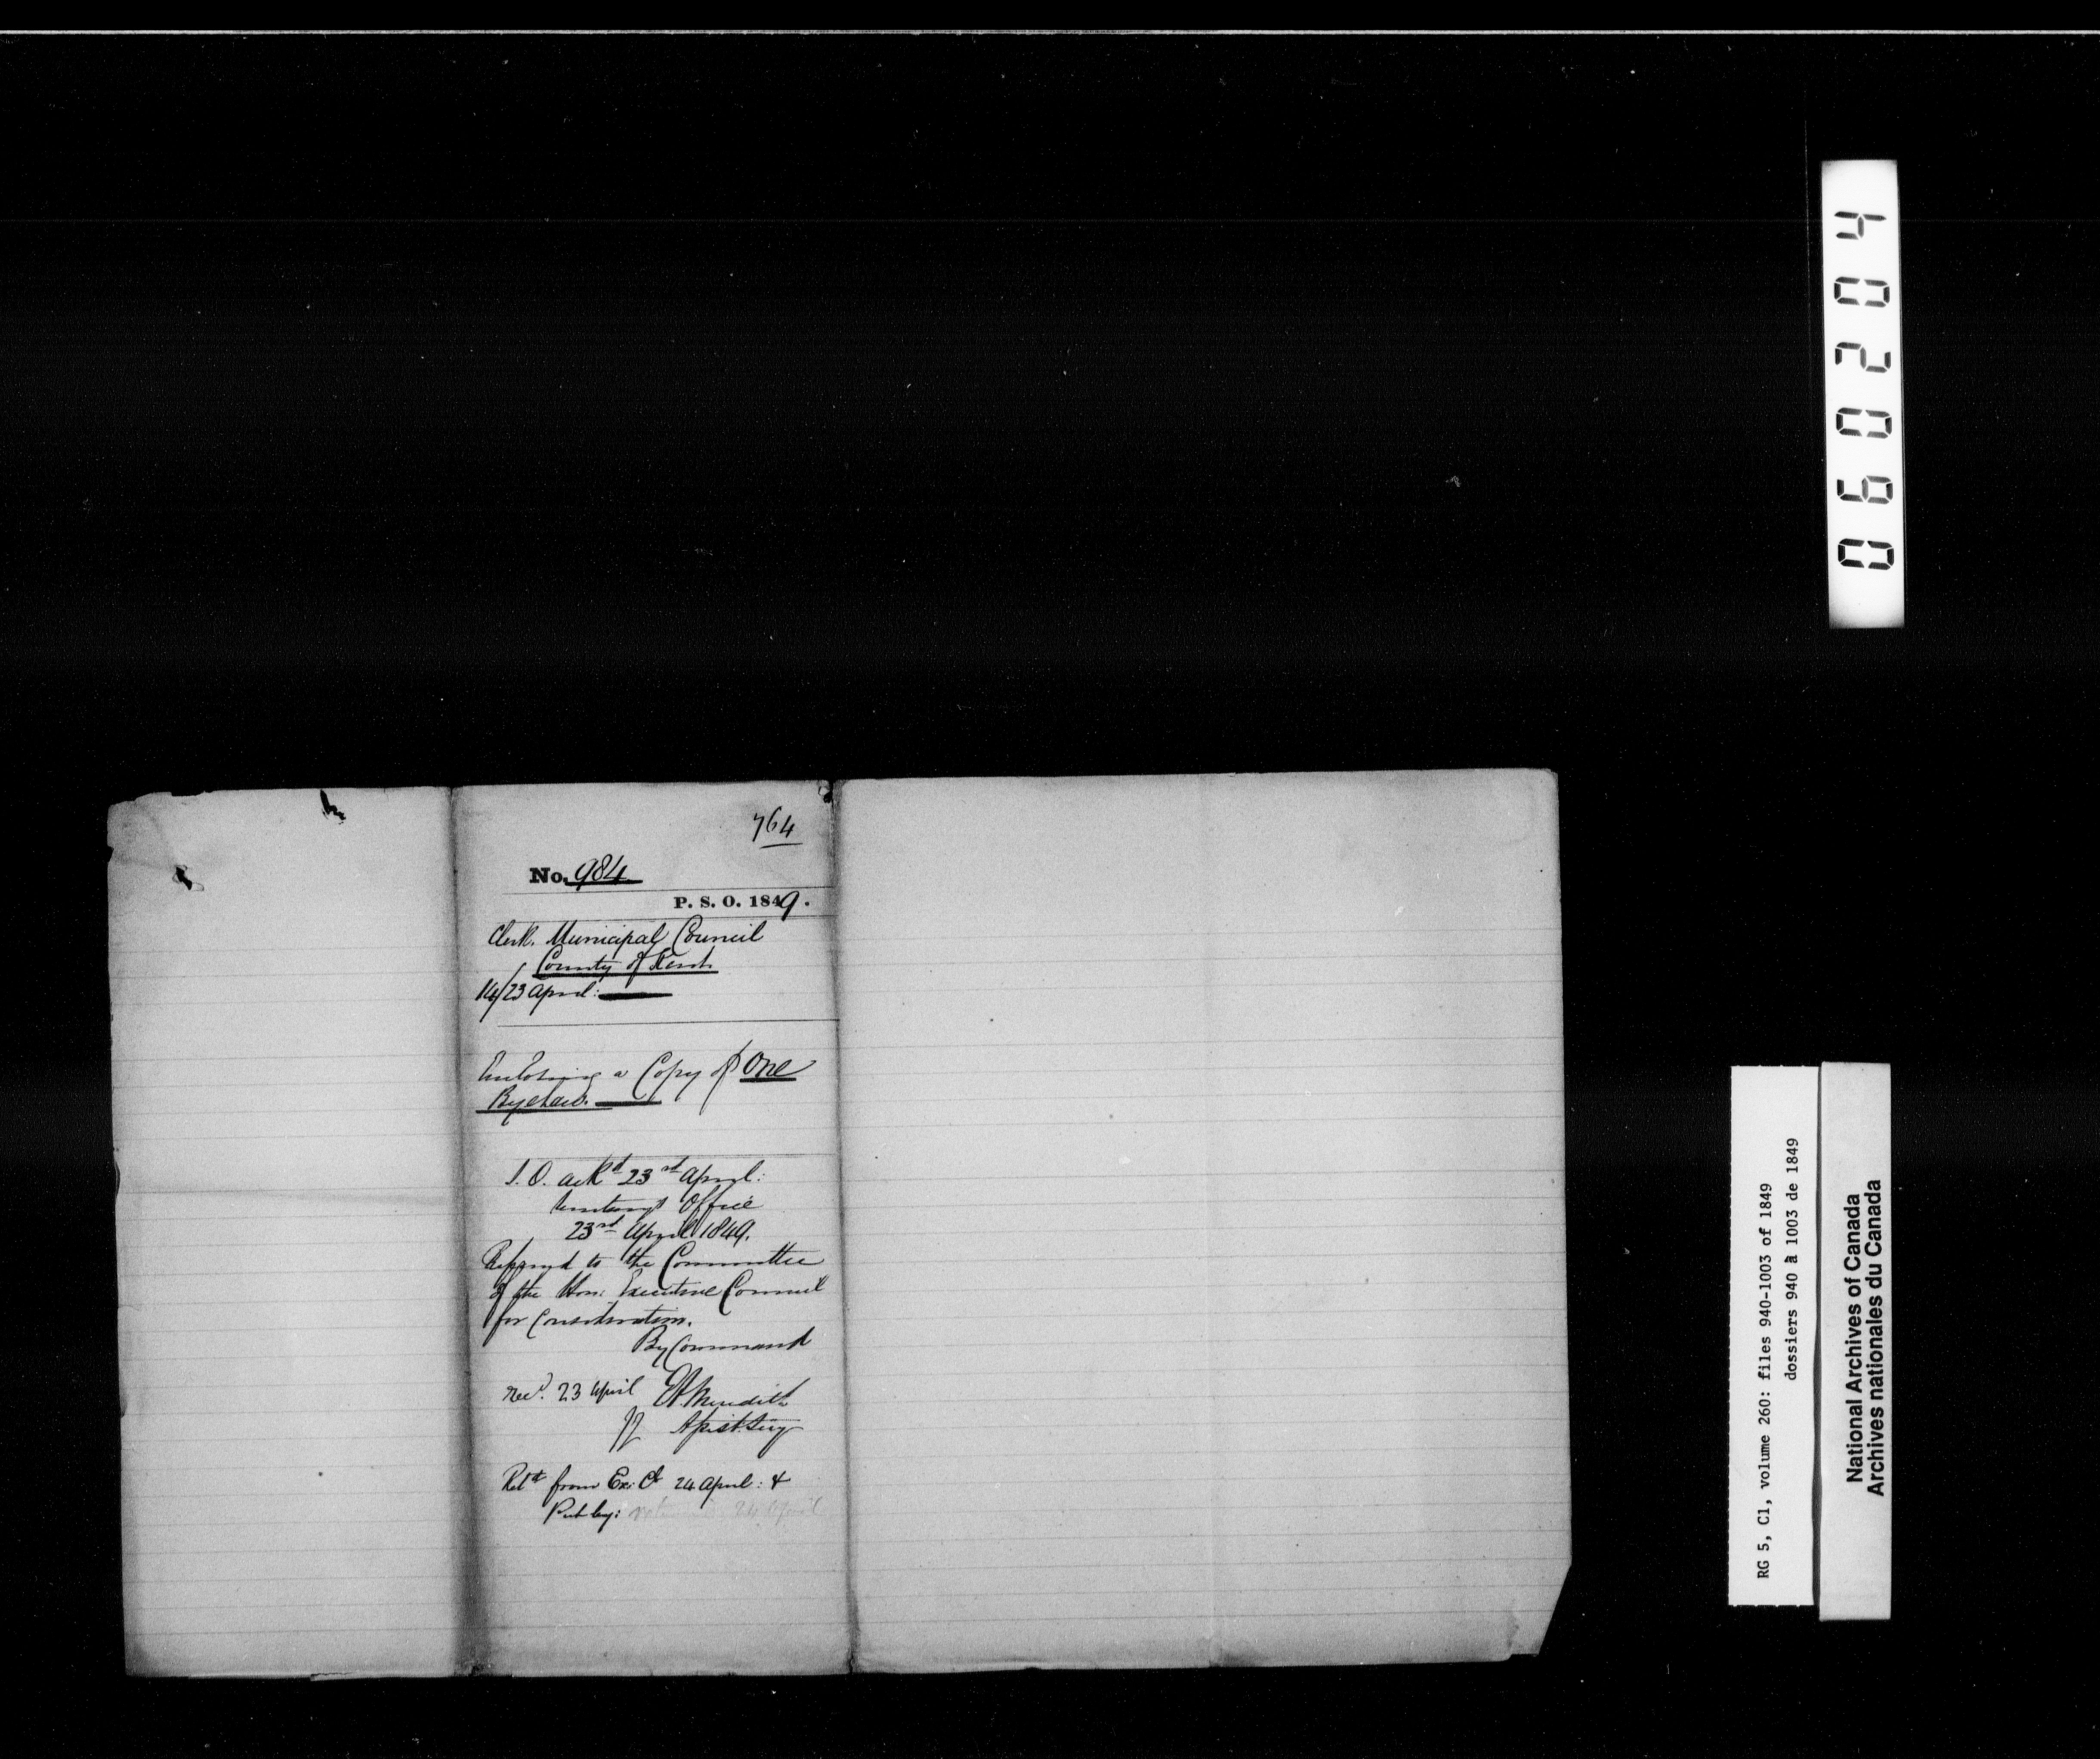 764
No. 984
P. S. O. 1849.
Clerk. Municipal Council
County of Kent
14/23 April:
Enclosing a Copy of One
Bye Law.
ackd 23rd April:
Office
23rd April 1849.
Referred to the Committee
of the Hon: Executive Council
for Consideration.
By Command
Recd. 23 April E A Meredith
Assist. Secy
Retd from Ex: Cl 24 April: &
Put by: 24 April
060204
RG 5, C1, volume 260: files 940-1003 of 1849
dossiers 940 à 1003 de 1849
National Archives of Canada
Archives nationales du Canada